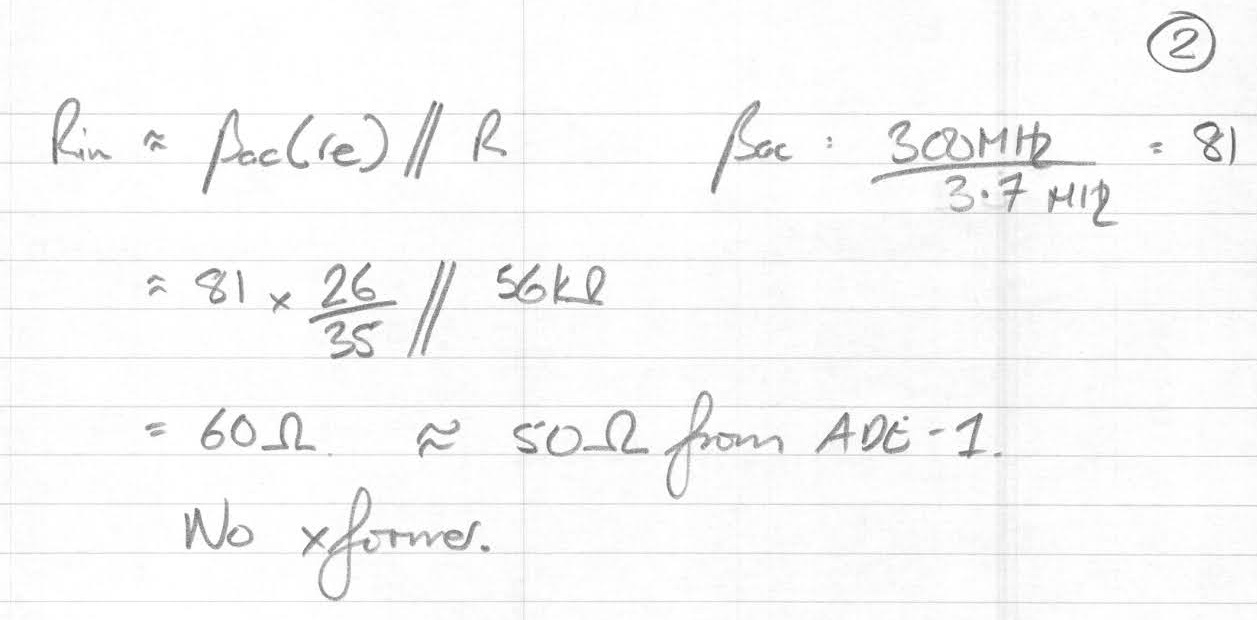 ②
Rin ≈ βac(re) // R    βac : 300MHz / 3.7 MHz = 81
≈ 81 × 26/35 // 56kΩ
= 60Ω ≈ 50Ω from ADE-1.
No xformer.